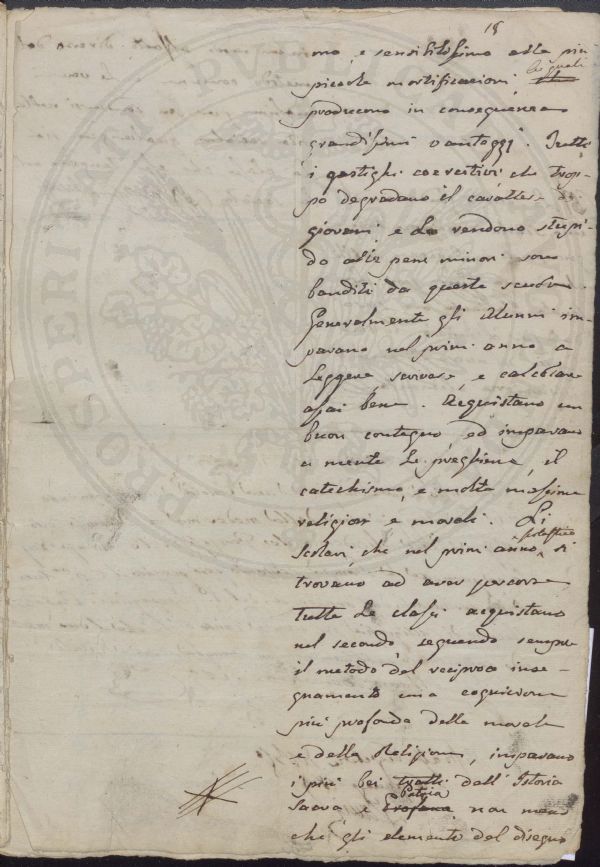 18
mo, e sensibilissimo alle più
piccole mortificazioni, le quali
producono in conseguenza
grandissimi vantaggi. Tutti
i gastighi coercitivi che trop-
po degradano il carattere di
giovani, e lo rendono stupi-
do alle pene minori sono
banditi da queste scuole.
Generalmente gli Alunni im-
parano nel primo anno a
Leggere scrivere, e calcolare
assai bene. Acquistano un
buon contegno, ed imparano
a mente Le preghiere, il
catechismo, e molte massime
religiose e morali. Li
scolari, che nel primo anno scolastico si
trovano ad aver percorse
tutte Le classi acquistano
nel secondo, seguendo sempre
il metodo del reciproco inse-
gnamento una cognizione
più profonda della morale
e della Religione, imparano
i più bei tratti dell'Istoria
Sacra e Profana Patria non meno
che gli elementi del disegno
PROCEPERITATI PUBLIC